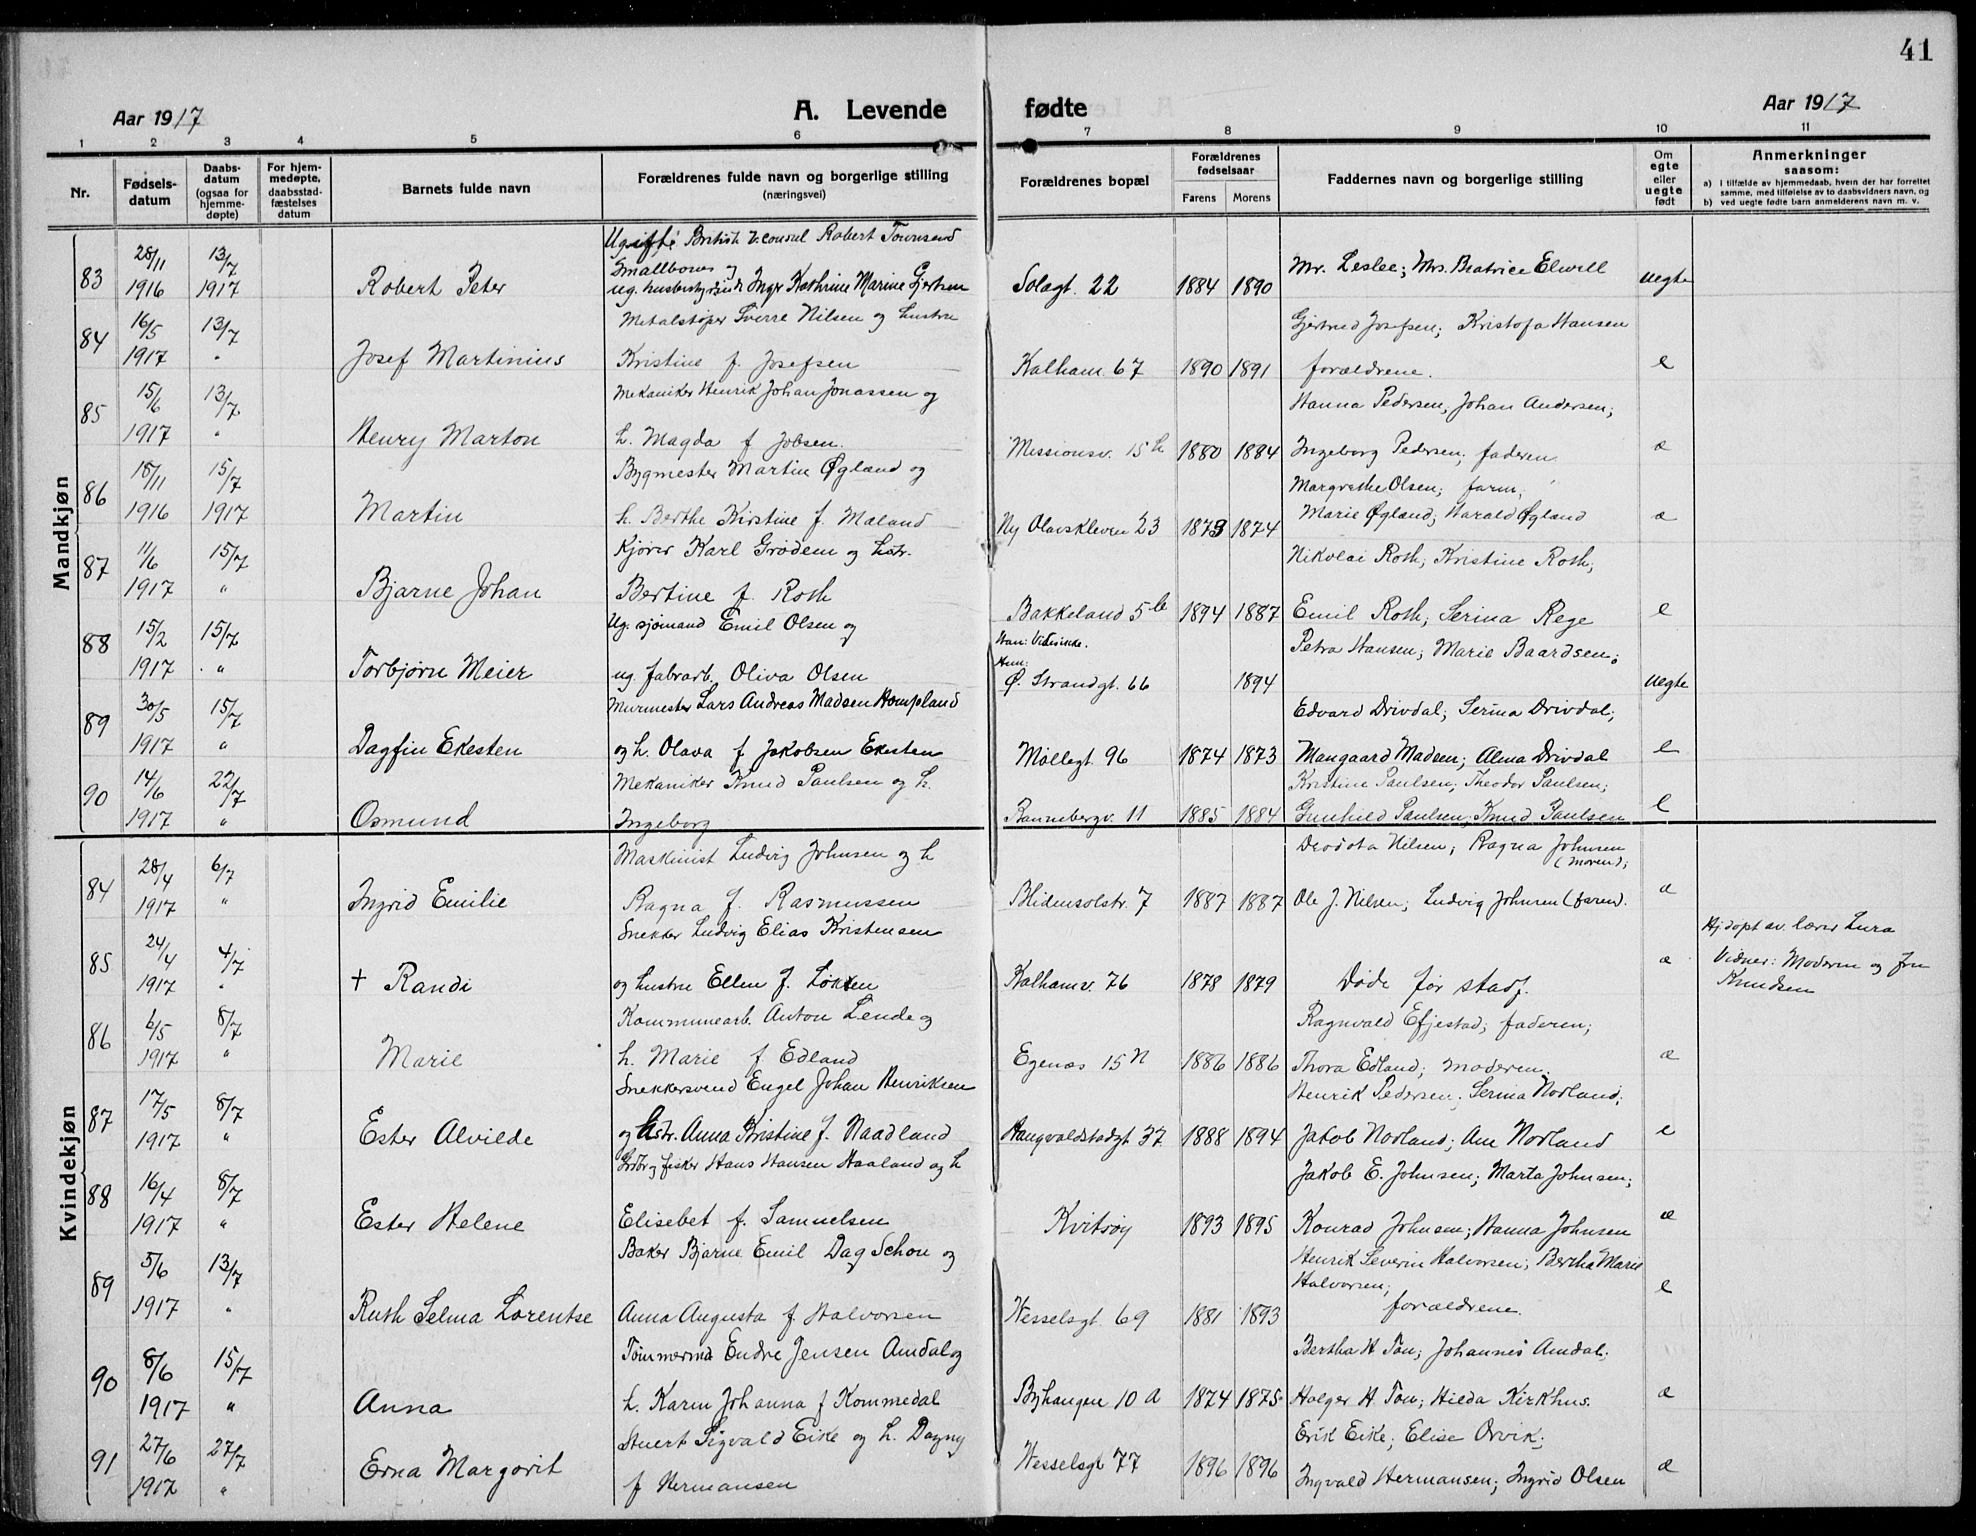 41
Aar 1917 A. Levende fødte Aar 1917
1 2 3 4 5 6 7 8 9 10 11
Nr. Fødsels-datum Daabs-datum (ogsaa for hjemme-døpte) For hjem-medøpte, daabsstad-fæstelses datum Barnets fulde navn Forældrenes fulde navn og borgerlige stilling (næringsvei) Forældrenes bopæl Forældrenes fødselsaar Farens Morens Faddernes navn og borgerlige stilling Om egte eller uegte født Anmerkninger saasom:
a) i tilfælde av hjemmedaab, hvem der har forrettet samme, med tilføielse av to daabsvidners navn, og
b) ved uegte fødte barn anmelderens navn m. v.
Mandkjøn
Ugifte British v. consul Robert Townsend
83 28/11 13/7 Smallbones og Mr. Leslee; Mrs. Beatrice Elwell
1916 1917 Robert Peter ug. husbestyrerinde Inga Kathrine Marine Gjertsen Solagt. 22 1884 1890 uegte
84 16/5 13/7 Metalstøper Sverre Nilsen og hustru Gjertrud Josefsen; Kristofa Hansen
1917 " Josef Martinius Kristine f. Josefsen Kalham. 67 1890 1891 forældrene. e
85 15/6 13/7 Mekaniker Henrik Johan Jonassen og Hanna Pedersen, Johan Andersen;
1917 " Henry Marton h. Magda f Jobsen. Missionsv. 15 h 1880 1884 Ingeborg Pedersen; faderen. e
86 18/11 15/7 Bygmester Martin Øgland og Margrethe Olsen; farm,
1916 1917 Martin h. Berthe Kirstine f. Maland Ny Olavskleven 23 1873 1874 Marie Øgland; Harald Øgland e
87 11/6 15/7 Kjører Karl Grødem og hstr. Nikolai Roth; Kristine Roth;
1917 " Bjarne Johan Bertine f. Roth Bakkeland 5 b 1894 1887 Emil Roth; Serina Rege e
88 15/2 15/7 Ug. sjømand Emil Olsen og Han: Viderinke. Petra Hansen; Marie Baardsen;
1917 " Torbjørn Meier ug. fabrarb. Oliva Olsen Hun: Ø. Strandgt. 66 1894 uegte
89 30/5 15/7 Murmester Lars Andreas Madsen Hompland Edvard Drivdal; Serina Drivdal;
1917 " Dagfin Ekesten og h. Olava f Jakobsen Ekesten Møllegt. 96 1874 1873 Mangaard Madsen; Alma Drivdal e
90 14/6 22/7 Mekaniker Knud Paulsen og h. Kristine Paulsen; Theodor Paulsen;
1917 " Osmund Ingeborg Bannebergv. 11 1885 1884 Gunhild Paulsen; Knud Paulsen e
Kvindekjøn
84 28/4 6/7 Maskinist Ludvig Johnsen og h Ragna Johnsen (moren);
1917 " Ingrid Emilie Ragna f. Rasmussen Blidensolstr. 7 1887 1887 Ole J. Nilsen; Ludvig Johnsen (faren). e
85 24/4 4/7 Snekker Ludvig Elias Kristensen Hj. døpt av lærer Lura
1917 " † Randi og hustru Ellen f. Løkken Kalhamv. 76 1878 1879 Døde før stadf. e Vidner: Moderen og fru Knudsen
86 6/5 8/7 Kommunearb. Anton Lende og Ragnvald Efjestad; faderen;
1917 " Marie h. Marie f Edland Egenæs 15 N 1886 1886 Thora Edland; moderen. e
87 17/5 8/7 Snekkersvend Engel Johan Henriksen Henrik Pedersen; Serina Norland;
1917 " Ester Alvilde og hstr. Anna Kristine f. Naadland Haugvaldstadgt 37 1888 1894 Jakob Norland; Ane Norland e
88 16/4 8/7 Grdbr og fisker Hans Hansen Haaland og h Jakob E. Johnsen; Marta Johnsen;
1917 " Ester Helene Elisebet f. Samuelsen Kvitsøy 1893 1895 Konrad Johnsen; Hanna Johnsen e
89 5/6 13/7 Baker Bjarne Emil Dag Schou og Henrik Severin Halvorsen; Bertha Marie Halvorsen;
1917 " Ruth Selma Lorentse Anna Augusta f Halvorsen Wesselsgt. 69 1881 1893 forældrene. e
90 8/6 15/7 Tømmermd Endre Jensen Amdal og Bertha H Tou; Johannes Amdal;
1917 " Anna h. Karen Johanna f Kommedal Byhaugen 10 a 1874 1875 Holger H Tou; Hilda Kirkhus. e
91 27/6 27/7 Stuert Sigvald Eike og h. Dagny Erik Eike; Elise Orvik;
1917 " Erna Margorit f Hermansen Wesselsgt 77 1896 1896 Ingvald Hermansen; Ingrid Olsen e